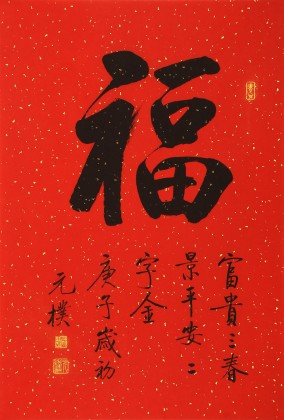 福
富貴三春
景平安二
字金
庚子歲初
元樸